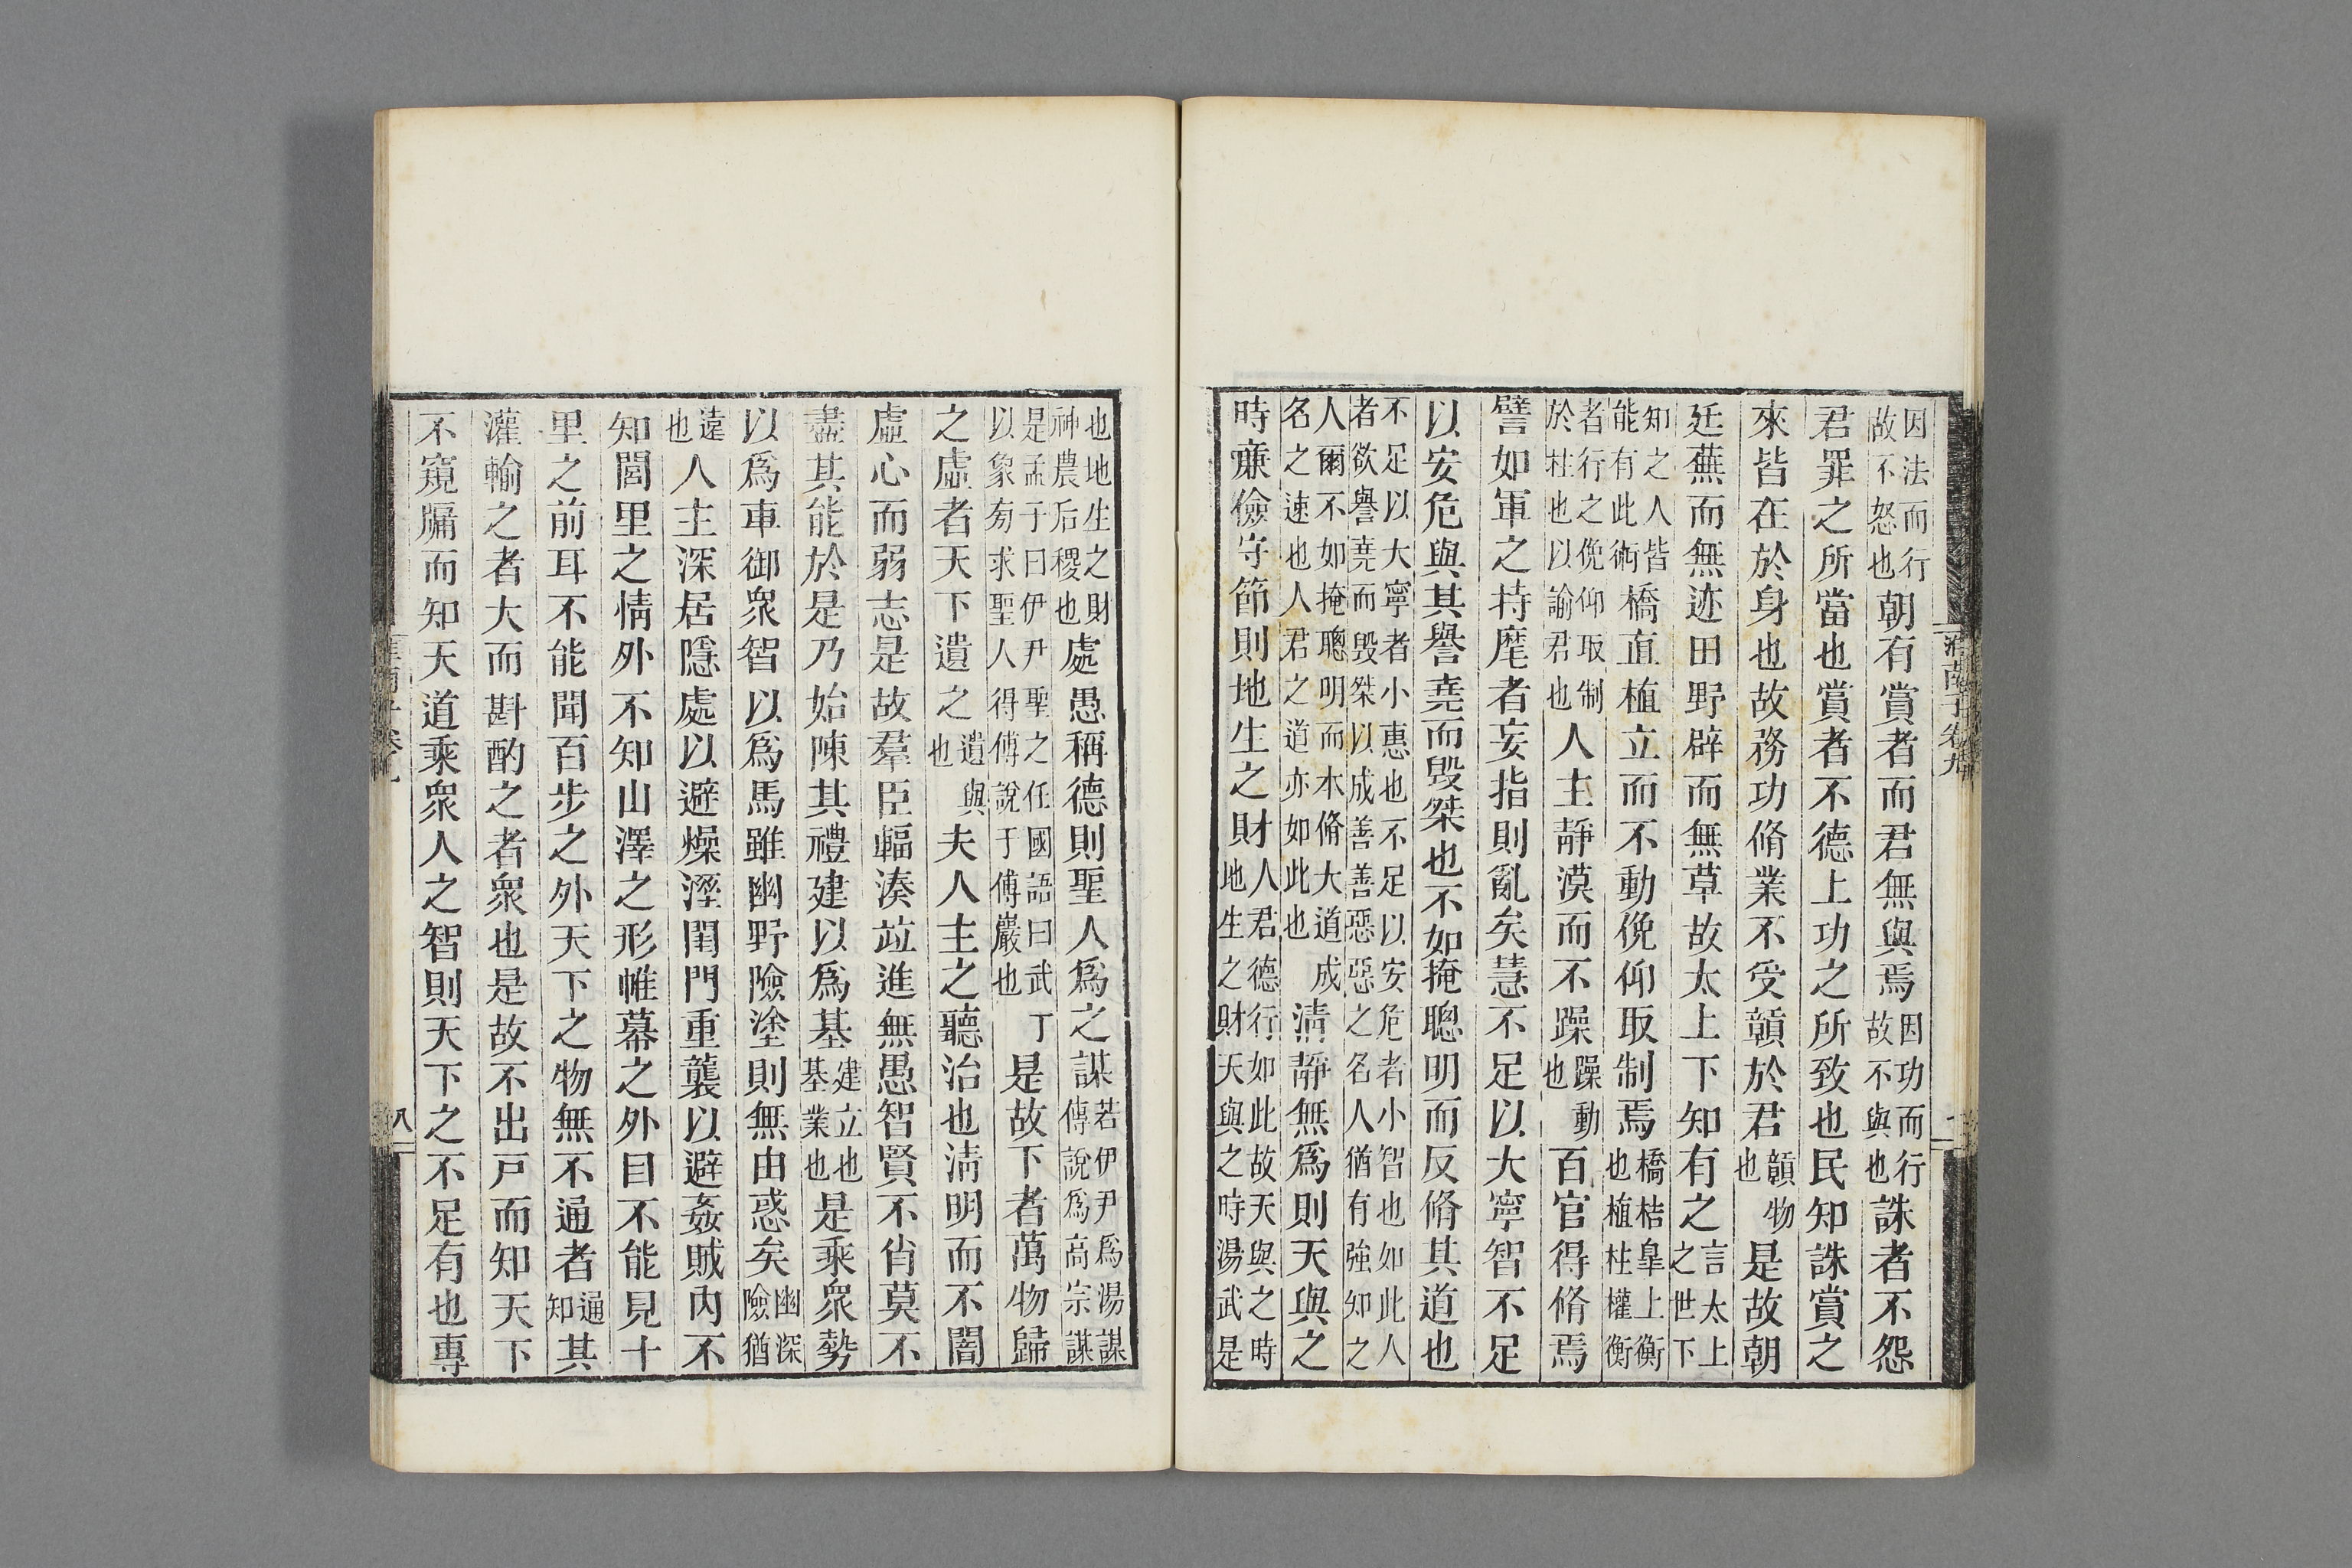 因法而行故不怒也朝有賞者而君無與焉因功而行故不與也誅者不怨
君罪之所當也賞者不德上功之所致也民知誅賞之
來皆在於身也故務功脩業不受贑於君贑物也是故朝
廷蕪而無迹田野辟而無草故太上下知有之言太上之世下
知之人皆能有此術橋直植立而不動俛仰取制焉橋桔臯上衡也植柱權衡
者行之俛仰取制於柱也以諭君也人主靜漠而不躁躁動也百官得脩焉
譬如軍之持麾者妄指則亂矣慧不足以大寧智不足
以安危與其譽堯而毀桀也不如掩聰明而反脩其道也
不足以大寧者小惠也不足以安危者小智也如此人者欲譽堯而毀桀以成善善惡惡之名人猶有強知之
人爾不如掩聰明而本脩大道成名之速也人君之道亦如此也清靜無爲則天與之
時亷儉守節則地生之財人君德行如此故天與之時地生之財天與之時湯武是
淮南子卷九
也地生之財神農后稷也處愚稱德則聖人爲之謀若伊尹爲湯謀傅說爲高宗謀
是孟子曰伊尹聖之任國語曰武丁以象旁求聖人得傅說于傅巖也是故下者萬物歸
之虛者天下遺之遺與也夫人主之聽治也清明而不闇
虛心而弱志是故羣臣輻湊竝進無愚智賢不肖莫不
盡其能於是乃始陳其禮建以爲基建立也基業也是乘衆勢
以爲車御衆智以爲馬雖幽野險塗則無由惑矣幽深險猶
遠也人主深居隱處以避燥溼閨門重襲以避姦賊內不
知閭里之情外不知山澤之形帷幕之外目不能見十
里之前耳不能聞百步之外天下之物無不通者通知其
灌輸之者大而斟酌之者衆也是故不出戸而知天下
不窺牖而知天道乘衆人之智則天下之不足有也專
淮南子卷九
八